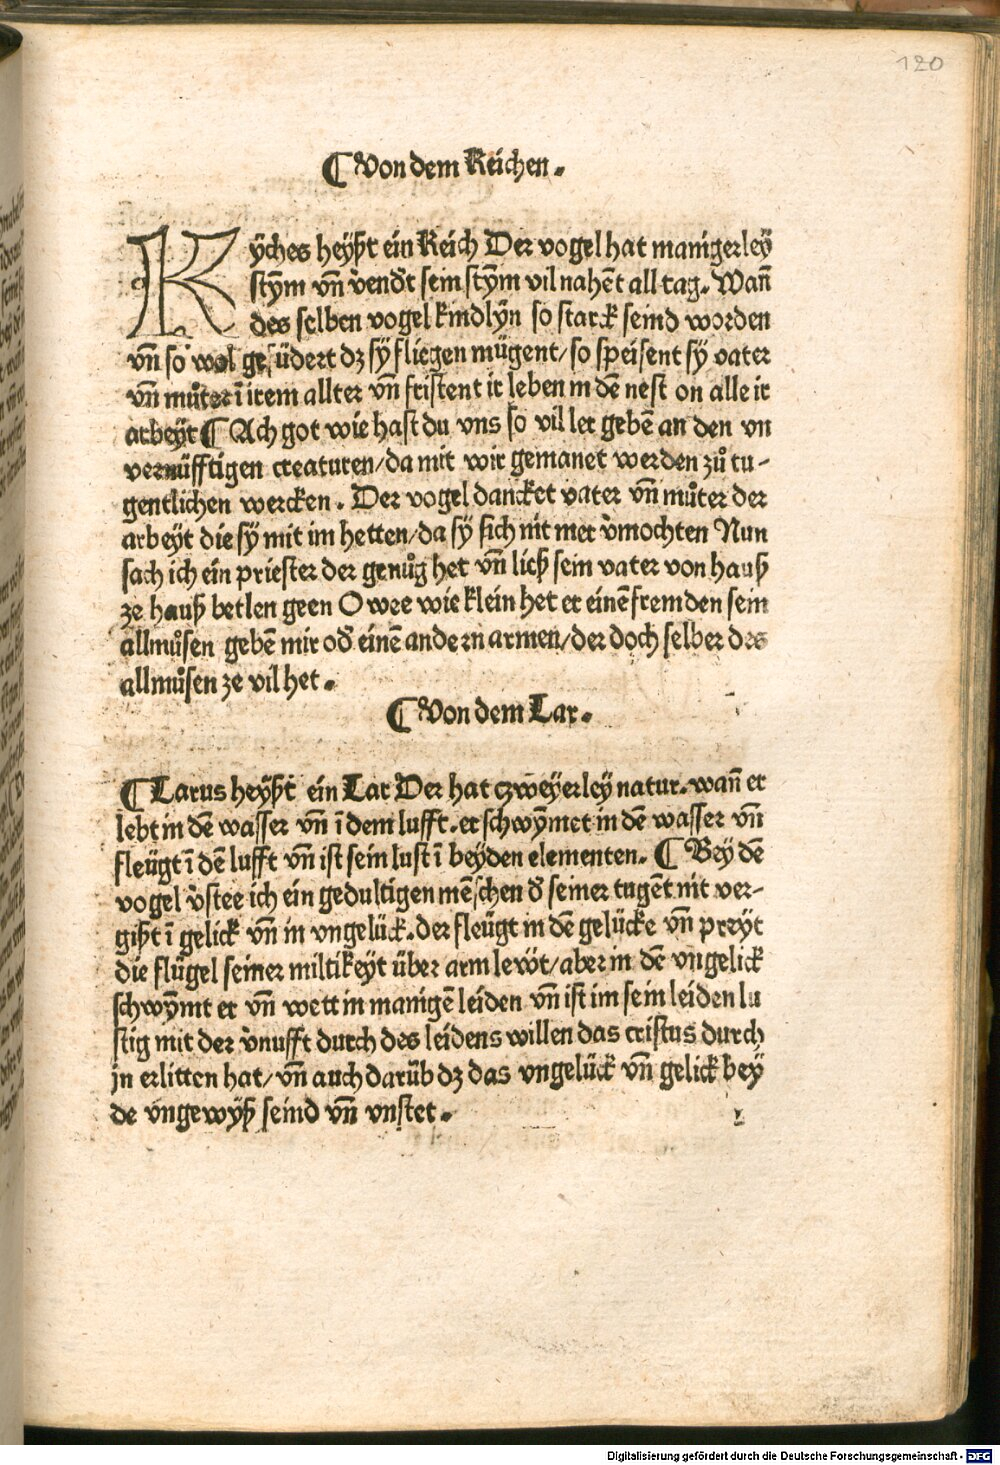 120
¶ Von dem Reichen.
Kÿches heÿßt ein Reich Der vogel hat manigerleÿ
stȳm vn̄ v̓endt sein stȳm vil nahēt all tag. Wan̄
des selben vogel kindlÿn so starck seind worden
vn̄ so wol gesüdert dz sÿ fliegen mügent / so speisent sÿ vater
vn̄ můter ī irem allter vn̄ fristent ir leben in dē nest on alle ir
arbeyt ¶ Ach got wie hast du vns so vil ler gebē an den vn
vernüfftigen creaturen / da mit wir gemanet werden zů tu-
gentlichen wercken. Der vogel dancket vater vn̄ můter der
arbeyt die sÿ mit im hetten / da sÿ sich nit mer v̓mochten Nun
sach ich ein priester der genůg het vn̄ ließ sein vater von hauß
ze hauß betlen geen O wee wie klein het er einē fremden sein
allmůsen gebē mir od̓ einē andern armen / der doch selber des
allmůsen ze vil het.
¶ Von dem Lar.
¶ Larus heÿßt ein Lar Der hat czweÿerleÿ natur. wan̄ er
lebt in dē wasser vn̄ ī dem lufft. er schwȳmet in dē wasser vn̄
fleügt ī dē lufft vn̄ ist sein lust ī beÿden elementen. ¶ Beÿ dē
vogel v̓stee ich ein gedultigen mēschen d̓ seiner tugēt nit ver-
gißt ī gelick vn̄ in vngelück. der fleügt in dē gelücke vn̄ preÿt
die flügel seiner miltikeÿt über arm lewt / aber in dē vngelick
schwȳmt er vn̄ wett in manigē leiden vn̄ ist im sein leiden lu
stig mit der v̓nufft durch des leidens willen das cristus durch
jn erlitten hat / vn̄ auch darūb dz das vngelück vn̄ gelick beÿ
de vngewÿß seind vn̄ vnstet.
Digitalisierung gefördert durch die Deutsche Forschungsgemeinschaft - DFG